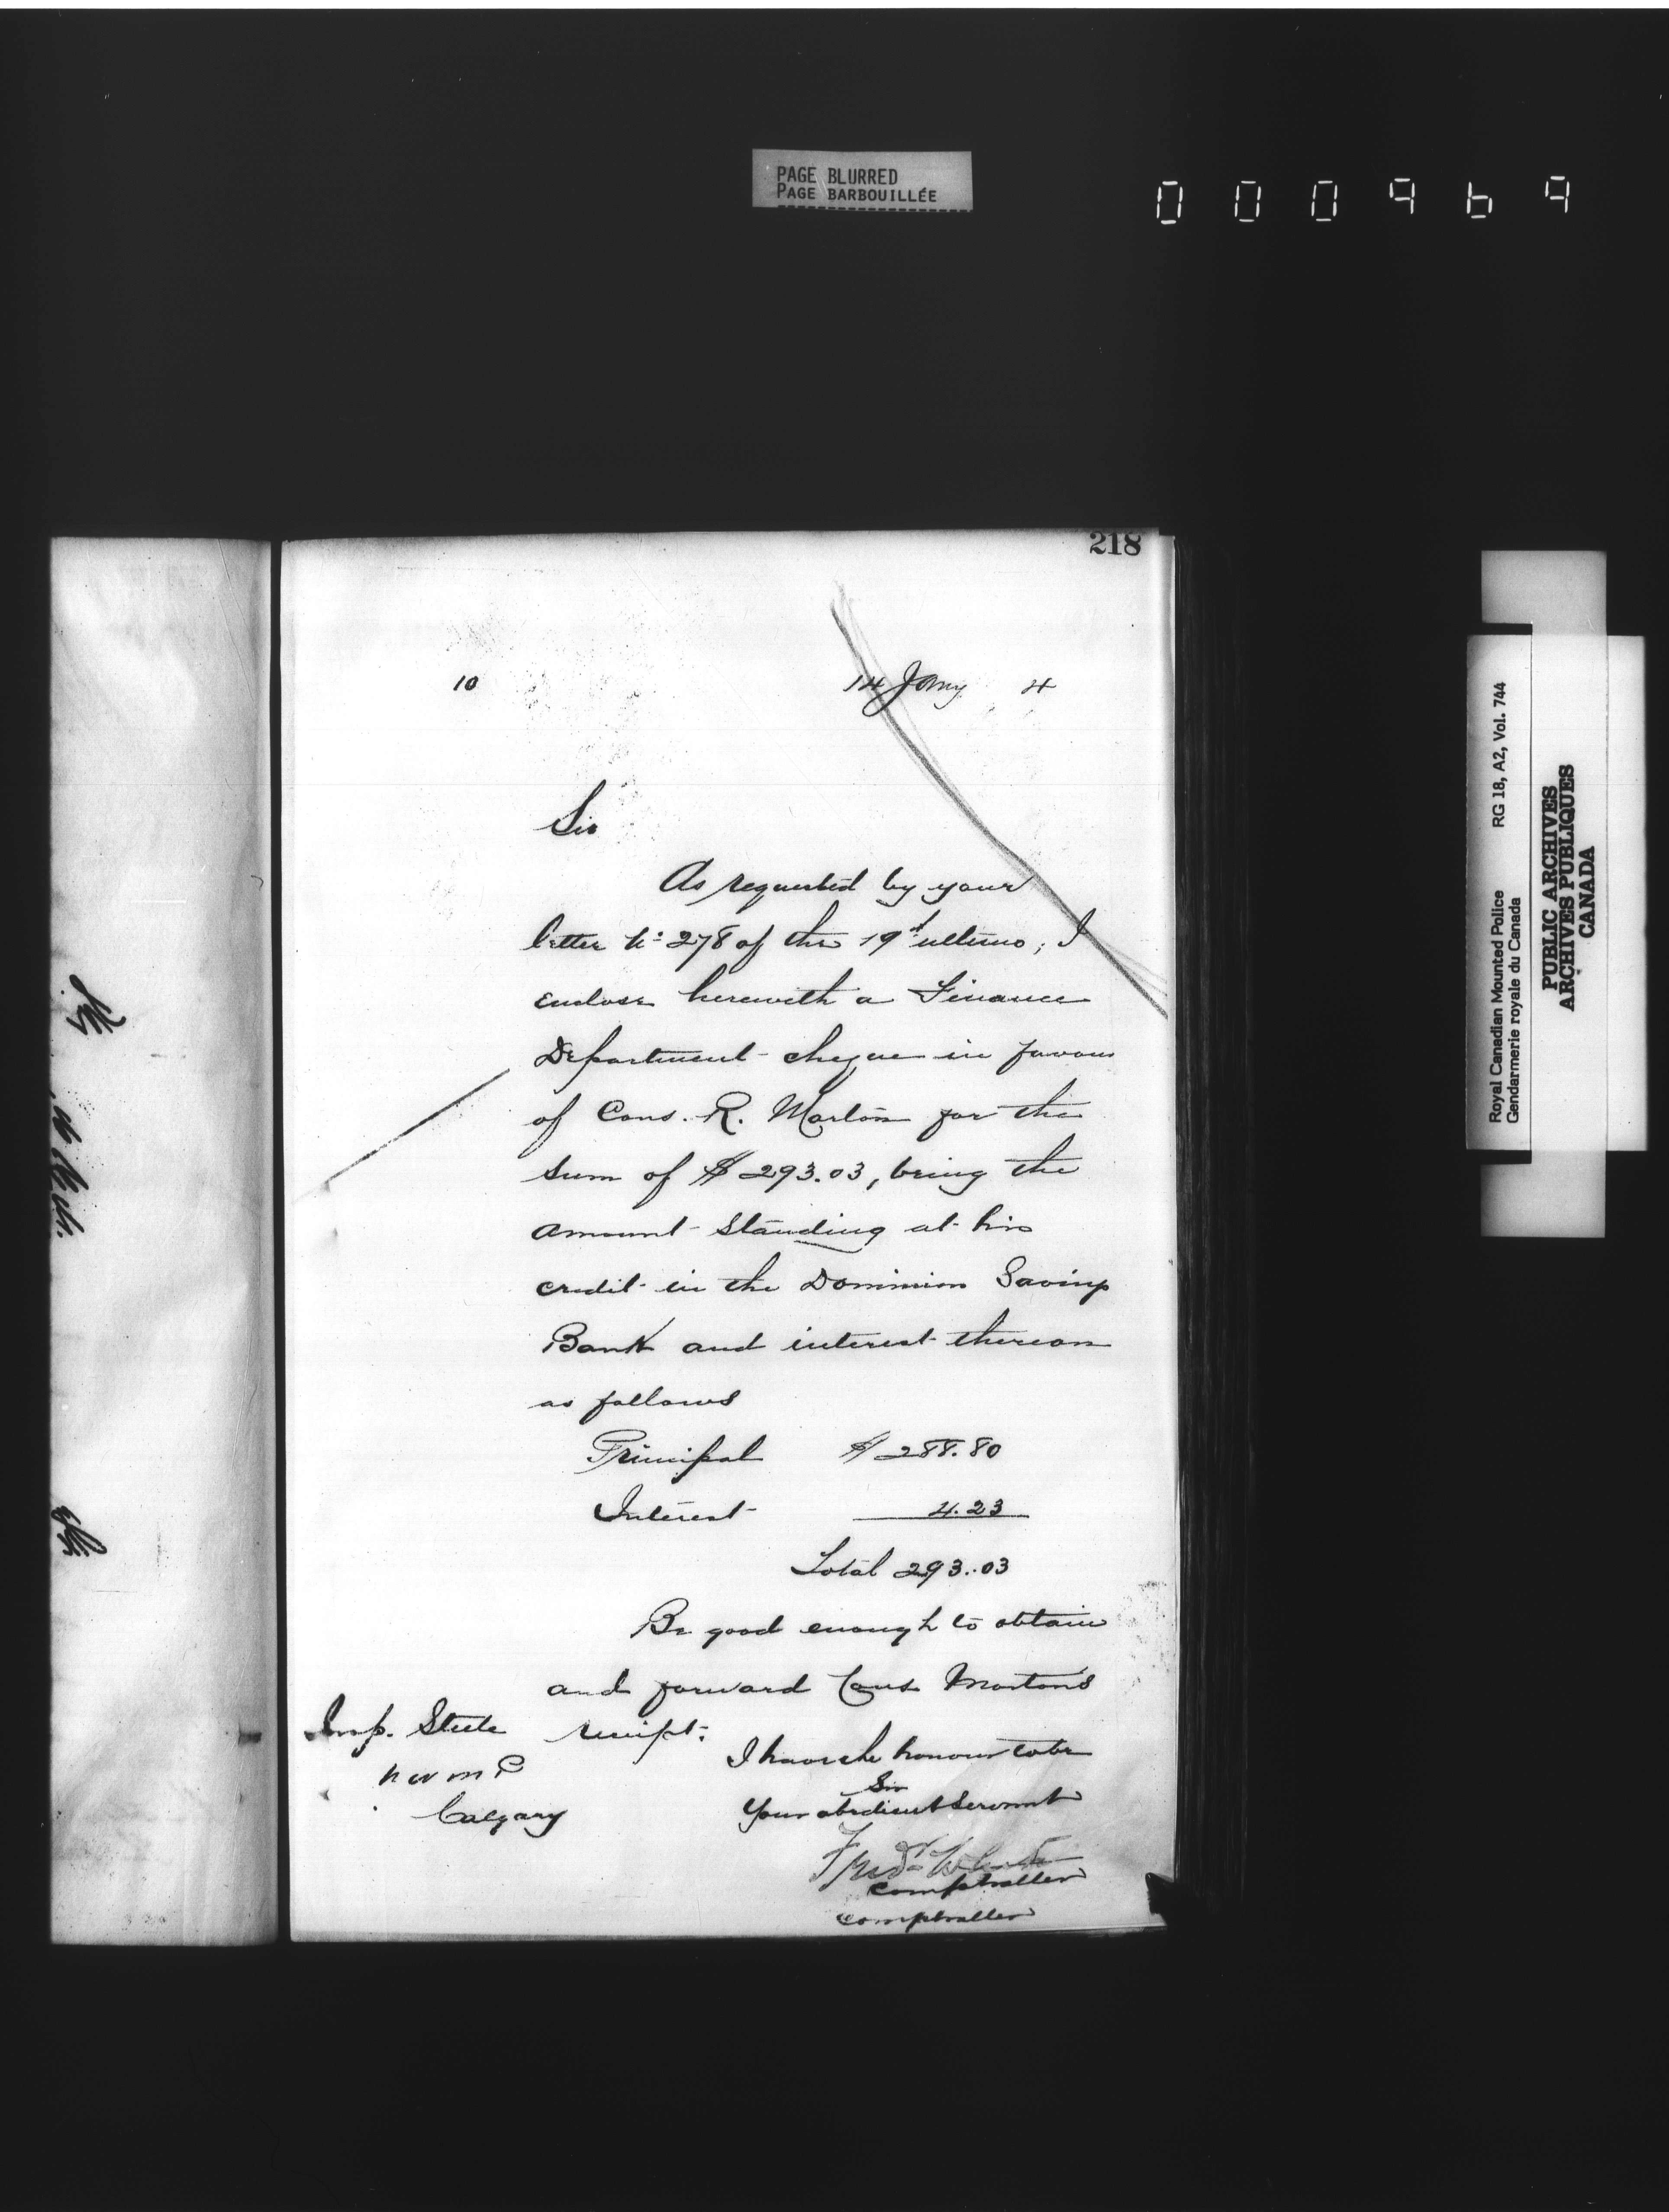 PAGE BLURRED
PAGE BARBOUILLÉE
000969
218
10 14 Jany 4
Sir
As requested by your
letter No 278 of the 19th ultimo, I
enclose herewith a Finance
Department cheque in favour
of Cons. R. Morton for the
sum of $293.03, being the
amount standing at his
credit in the Dominion Savings
Bank and interest thereon
as follows
Principal $288.80
Interest 4.23
Total 293.03
Be good enough to obtain
and forward Const Morton's
receipt.
I have the honour to be
Sir
Your obedient Servant
Fred White
Comptroller
Comptroller
Insp. Steele
NWMP
Calgary
Royal Canadian Mounted Police RG 18, A2, Vol. 744
Gendarmerie royale du Canada
PUBLIC ARCHIVES
ARCHIVES PUBLIQUES
CANADA